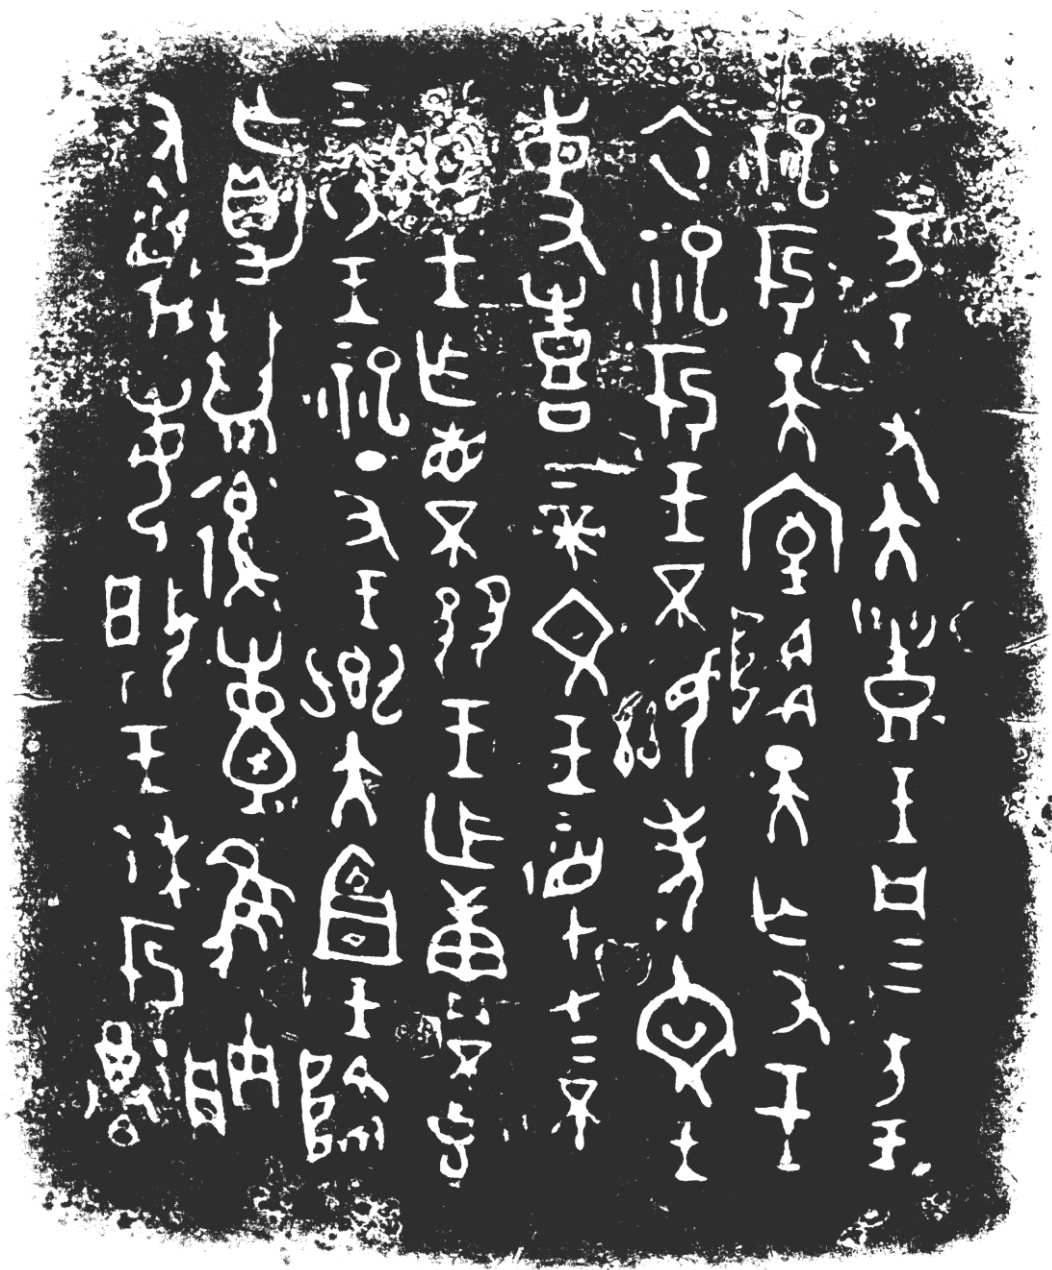 亥王又大豊王凡三方王
祀于天室降天亡又王
衣祀于王不顯考文王
事喜上帝文王監才上不
顯王乍省不𬱊王乍庸不克
乞衣王祀丁丑王鄉大宜王降
亡爵復隹朕
又蔑每啟王休于